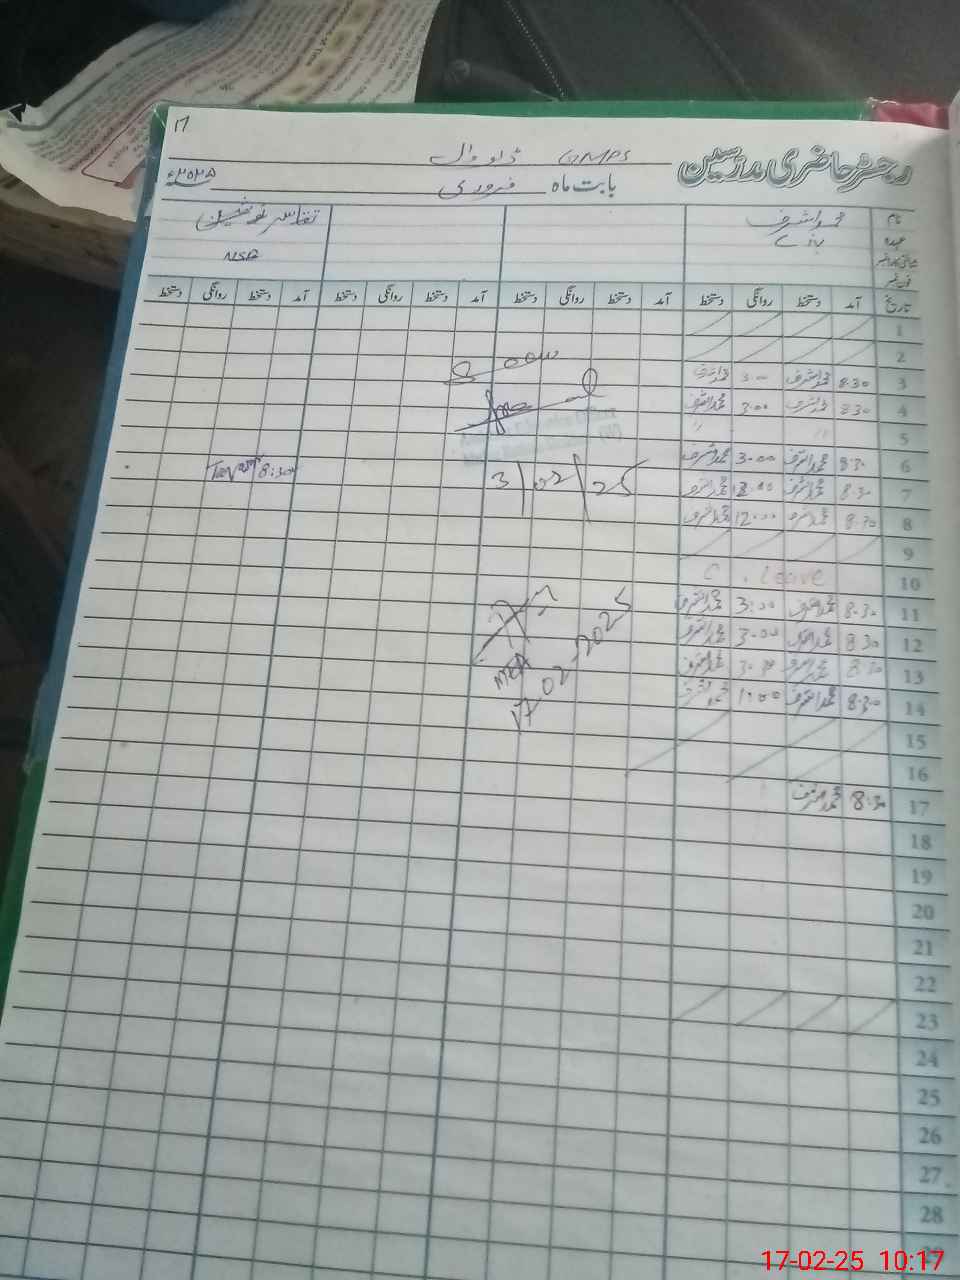 17
رجسٹر حاضری مدرسین GMPS
بابت ماہ فروری ۲۰۲۵ء
نام محمد اشرف
عہدہ
شناختی کارڈ نمبر NSB
فون نمبر
تاریخ آمد دستخط روانگی دستخط آمد دستخط روانگی دستخط آمد دستخط روانگی دستخط آمد دستخط روانگی دستخط
1
2
3 8.30 محمد اشرف 3.00 محمد اشرف
4 8.30 محمد اشرف 3.00 محمد اشرف
5 " "
6 8.30 محمد اشرف 3.00 محمد اشرف 8:30
7 8.30 محمد اشرف 12.00 محمد اشرف 3/02/25
8 8.30 محمد اشرف 12.00 محمد اشرف
9
10 C. Leave
11 8.30 محمد اشرف 3:00 محمد اشرف
12 8.30 محمد اشرف 3.00 محمد اشرف
13 8.30 محمد اشرف 3.00 محمد اشرف
MEA
14 8.30 محمد اشرف 1:00 محمد اشرف
17-02-2025
15
16
17 8.30 محمد اشرف
18
19
20
21
22
23
24
25
26
27
28
29
17-02-25 10:17